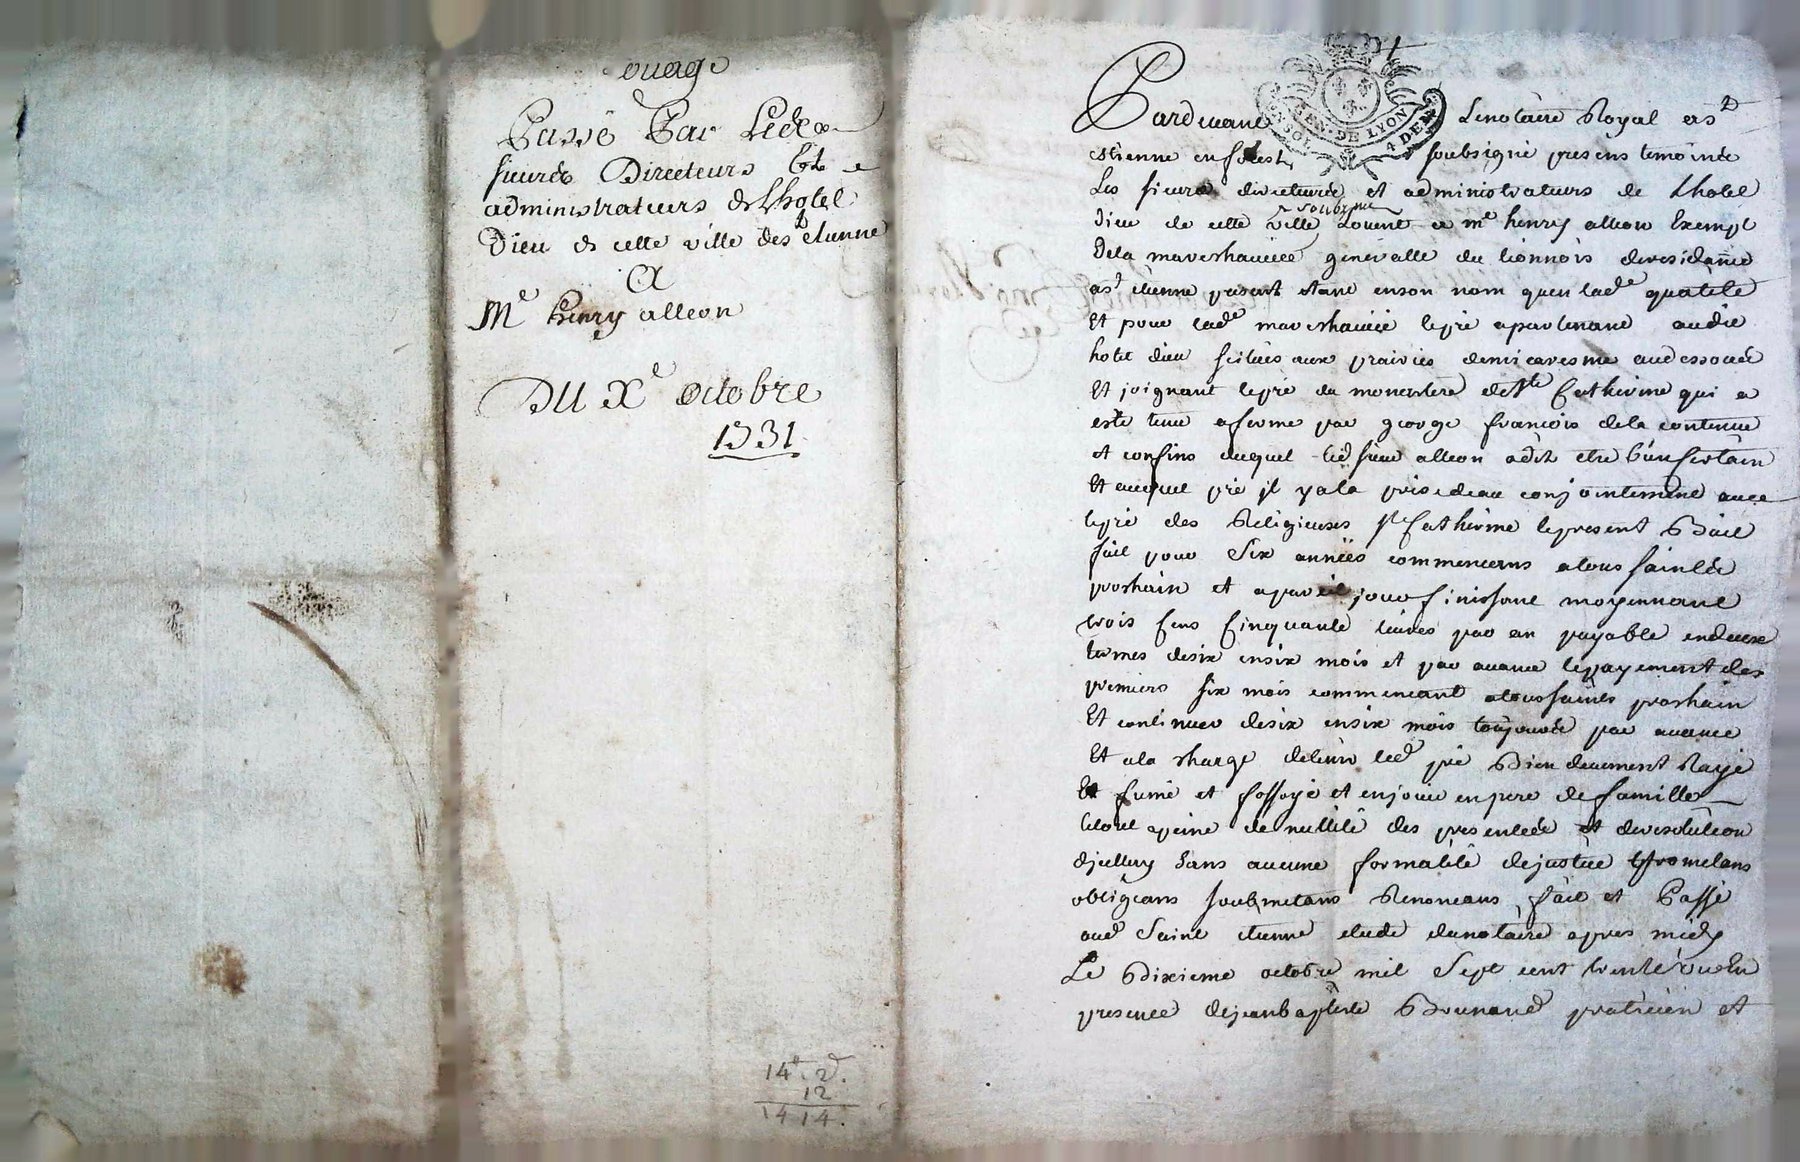 ouage
Passé Par Lesd
sieurs Directeurs et
administrateurs de Lhotel
Dieu de cette ville de st etienne
A
Me henry alleon
DU Xe octobre
1731
14s. 2d.
12
14 14.
GEN. DE LYON
4 DEN
Pardevant Lenotaire Royal a st
etienne en forest soubsigné presens temoins
Les sieurs directeurs et administrateurs de Lhotel
dieu de cette ville soubsignes Louent a me henry alleon Exempt
dela mareshaucée generalle du lionnois deresidance
a st etienne present etant enson nom quen lade qualité
Et pour lade mareshaucée lepré apartenant audit
hotel dieu scitués aux prairies demicaresme audessous
Et joignant lepré du monestere de ste Catherine qui a
esté tenu aferme par george francois dela contenue
et confins duquel led sieur alleon a dit etre bien certain
Et auquel pré jl yala prisedeau conjointement avec
lepré des Religieuses ste Catherine lepresent Bail
fait pour Six années commencans atoussaintes
prochain et apareil jour finissant moyennant
trois Cens Cinquante livres par an payable endeux
termes desix ensix mois et par avance lepayement des
premiers six mois commencant atoussaints prochain
Et continuer desix ensix mois toujours par avance
Et ala charge detenir led pré Bien deuement Rayé
Et fumé et fossoyé et enjouir enpere de famille
letout apeine de nullité des presentes et deresolution
djcelluy sans aucune formalité dejustice Promettans
obligeans soubmetans Renoncans fait et Passé
aud Saint etienne etude dunotaire apres midy
Le Dixieme octobre mil Sept cent trente un En
presence dejeanbaptiste Brunand praticien et